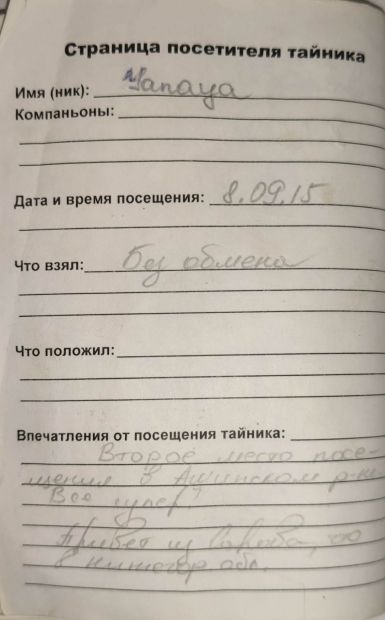 Страница посетителя тайника
Имя (ник): Чапауа
Компаньоны:
Дата и время посещения: 8.09.15
Что взял: Без обмена
Что положил:
Впечатления от посещения тайника:
Второе место посе-
щения в Ашинском р-не
Все супер!
Привет из Сарова, что
в нижегор обл.